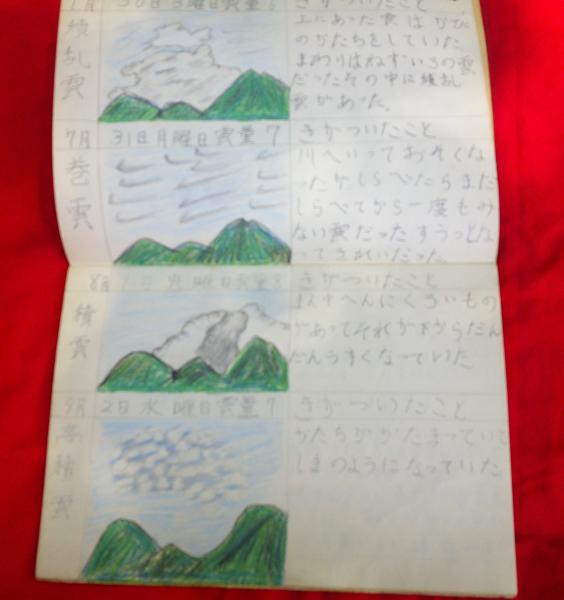 7月 30日 日曜日 雲量 6 きがついたこと
積乱雲
上にあった雲はかびんのかたちをしていた
まわりはねずいろの雲
だったその中に積乱
雲があった。
7月 31日 月曜日 雲量 7 きがついたこと
巻雲
川へいっておそくな
ったがしらべたらまだ
しらべてから一度もみ
ない雲だったすうっとな
ってきれいだった。
8月 1日 火曜日 雲量 8 きがついたこと
積雲
まん中へんにくろいもの
があってそれが下からだん
だんうすくなっていた
9月 2日 水曜日 雲量 7 きがついたこと
高積雲
かたちがかたまっていて
しまのようになっていた